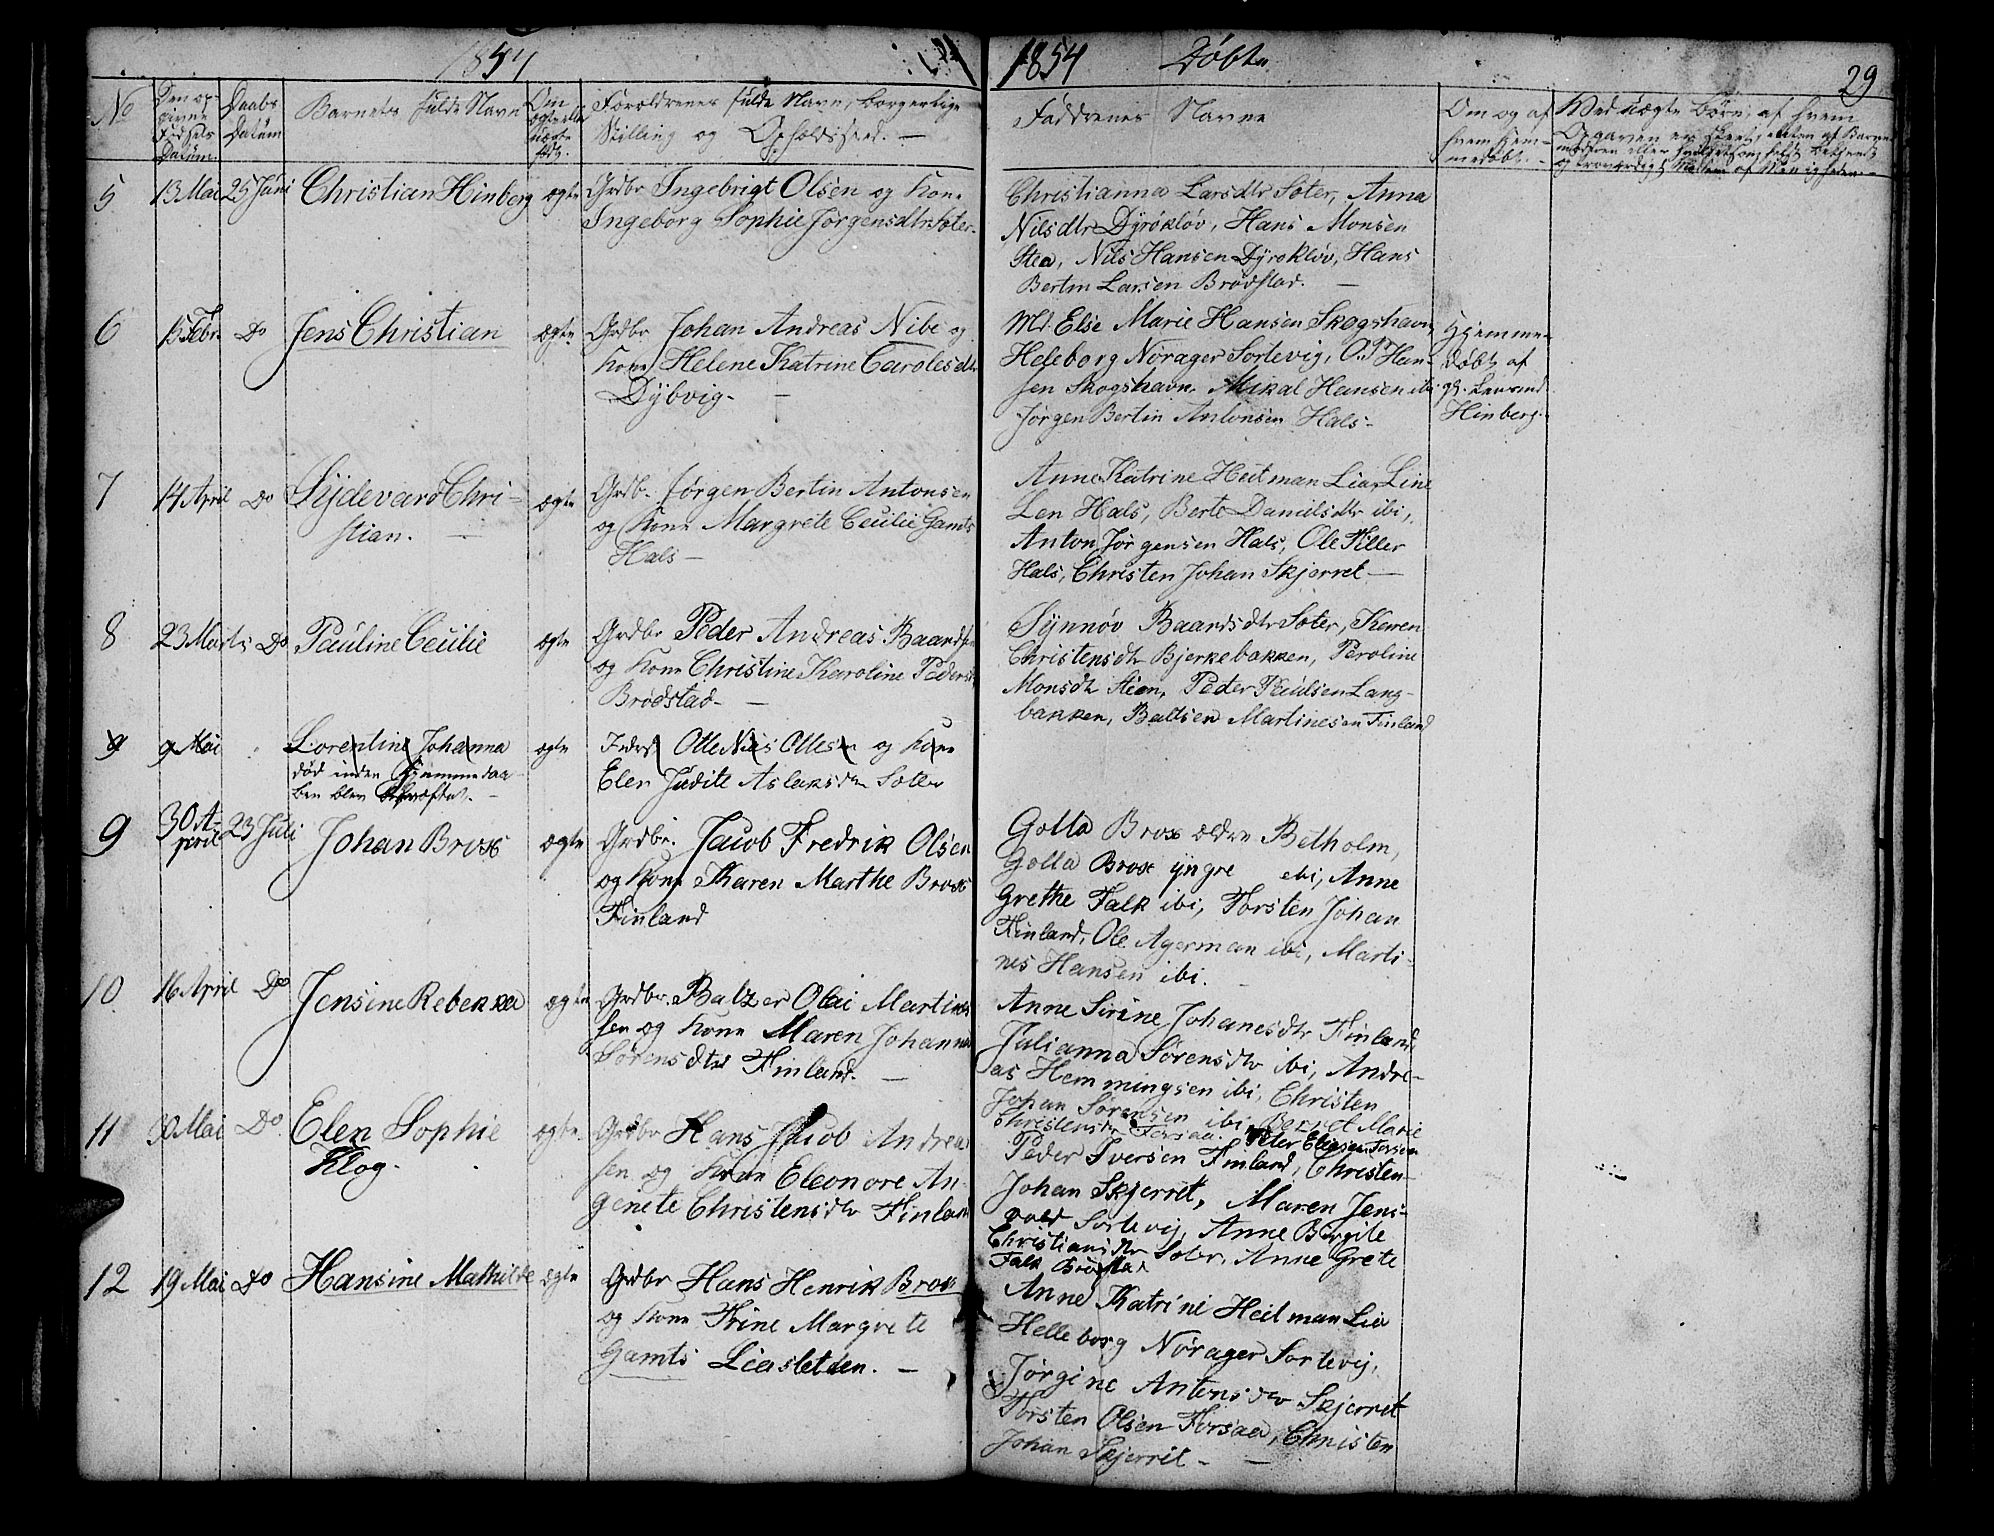 1854
1854 Døbte 29
No
Den op-
givne
Fødsels
Datum.
Daabs
Datum
Barnets fulde Navn
Om
ægte eller
uægte
født.
Forældrenes fulde Navn, borgerlige
Stilling og Opholdssted. —
Faddrenes Navne
Om og af
hvem hjem-
medøbt. -
Ved uægte Børn, af hvem
Opgaven er skeet, enten af Barne-
moderen eller
og troværdigt Medlem af Menigheden. -
5 13 Mai 25 Juni Christian Hinberg ægte Grdbr Ingebrigt Olsen og Kone
Ingeborg Sophie Jørgensdtr Soter.
Christianna Larsdtr Soter, Anna
Nilsdtr Dyrøkløv, Hans Monsen
Stea, Nils Hansen Dyrøkløv, Hans
Bertin Larsen Brødstad. —
6 15 Febr. Do Jens Christian ægte Grdbr Johan Andreas Nibe og
Kone Helene Katrine Carolesdtr
Dybvig. —
Md. Else Marie Hansen Skogshavn,
Heleborg Nørager Sortevig, O. P. Han-
sen Skogshavn. Mikal Hansen ibi
Jørgen Bertin Antonsen Hals -
Hjemme-
døbt af
Hinberg.
7 14 April Do Sydevard Chri-
stian. — ægte Grdb. Jørgen Bertin Antonsen
og Kone Margrete Cecilie Gamts
Hals —
Anne Katrine Heitman Lia, Line
Len Hals, Berte Danielsdtr ibi,
Anton Jørgensen Hals, Ole Hiller
Hals, Christen Johan Skjerret —
8 23 Marts Do Pauline Cecilie ægte Grdbr Peder Andreas Baardsen
og Kone Christine Karoline Peders
Brødstad - —
Synnøv Baardsdtr Soter, Karen
Christensdtr Bjerkebakken, Peroline
Monsdtr Steen, Peder Paulsen Lang-
bakken, Baltsen Martinesen Finland
9 9 Mai Lorentine Johanna ægte Inderst Olle Nils Ollesen og Kone
død inden Hjemmedaa-
ben blev
Elen Judite Aslaksdtr Soter
9 30 A-
pril 23 Juli Johan Brox ægte Grdbr. Jacob Fredrik Olsen
og Kone Karen Marthe Brox
Finland
Golla Brox ældre Betholm,
Golla Brox yngre ibi, Anne
Grethe Falk ibi, Torsten Johan
Finland, Ole Agerman ibi, Marti-
nes Hansen ibi. -
10 16 April Do Jensine Rebekka ægte Grdbr. Balzer Olai Martine-
sen og Kone Maren Johanna
Sørensdtr Finland. —
Anne Sirine Johanesdtr Finland,
Julianna Sørensdtr ibi, Andre-
as Hemmingsen ibi, Christen
Johan Sørensen ibi, Beret Marie
Christensdtr Forsaa. Peter Eliasen Forsaa
11 30 Mai Do. Elen Sophie
Klog. ægte. Grdbr Hans Jacob Andrea-
sen og Kone Eleonore An-
genete Christensdtr Finland
Peder Iversen Finland, Christen
Johan Skjerret, Maren Jens-
vold Sortevig, Anne Birgite
Christiansdtr Soter, Anne Grete
Falk Brødstad
12 19 Mai Do Hansine Mathilde ægte Grdbr Hans Henrik Brox
og Kone Trine Margrete
Gamts Liasletten. —
Anne Katrine Heitman Lia
Helleborg Nørager Sortevig,
Jørgine Antonsdtr Skjerret
Torsten Olsen Forsaa, Christen
Johan Skjerret - -